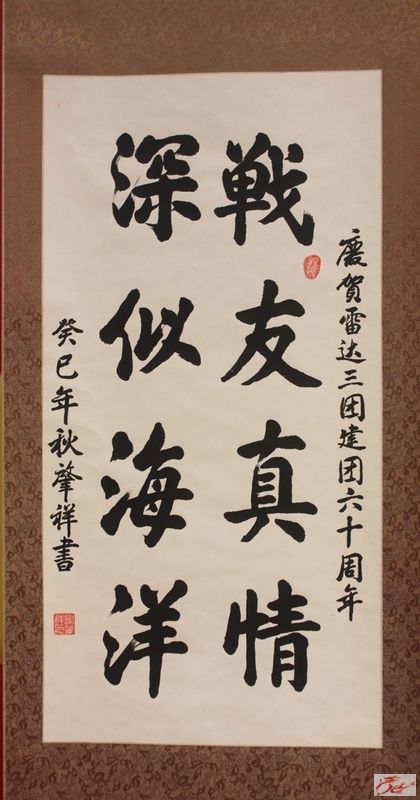 庆贺雷达三团建团六十周年
戦友真情
深似海洋
癸巳年秋肇祥書